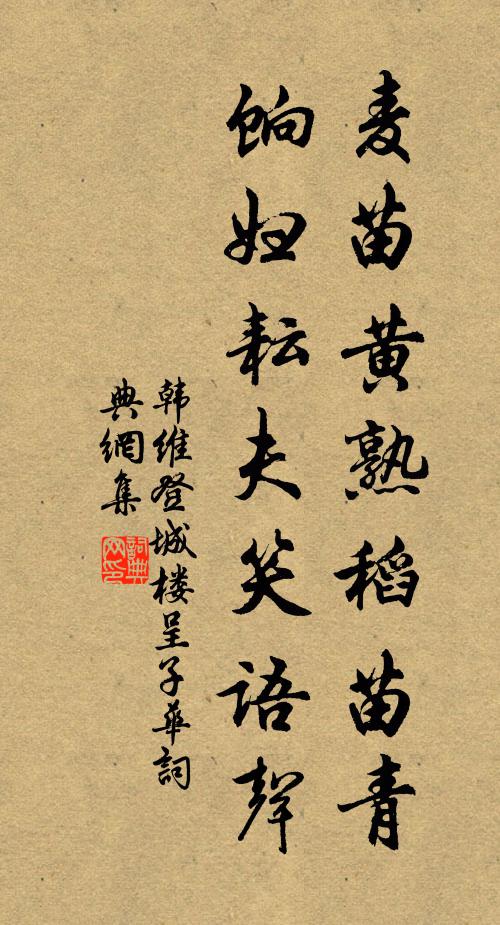 麦苗黄熟稻苗青
饷妇耘夫笑语声
韩维登城楼呈子华詞
典網集
詞典
网印